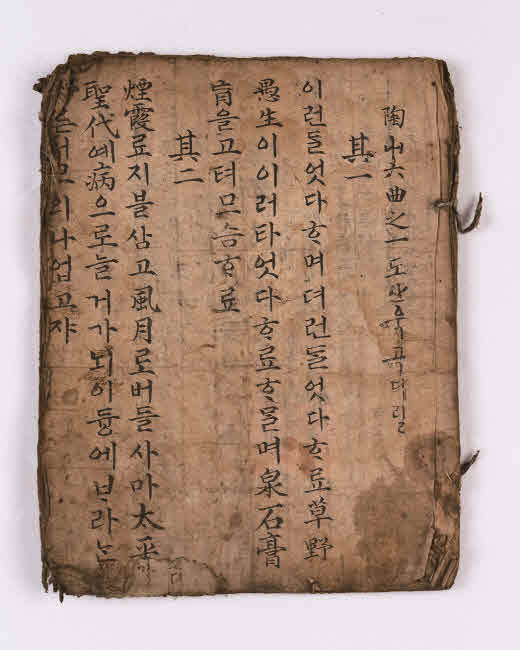 陶山六曲之一 도산육곡디일
其一
이런ᄃᆞᆯ엇다ᄒᆞ며뎌런ᄃᆞᆯ엇다ᄒᆞ료草野
愚生이이러타엇다ᄒᆞ료ᄒᆞ믈며泉石膏
肓을고텨므슴ᄒᆞ료
其二
煙霞로지블삼고風月로버들사마太平
聖代예病으로늘거가뇌이듕에ᄇᆞ라ᄂᆞᆫ
허므리나업고쟈